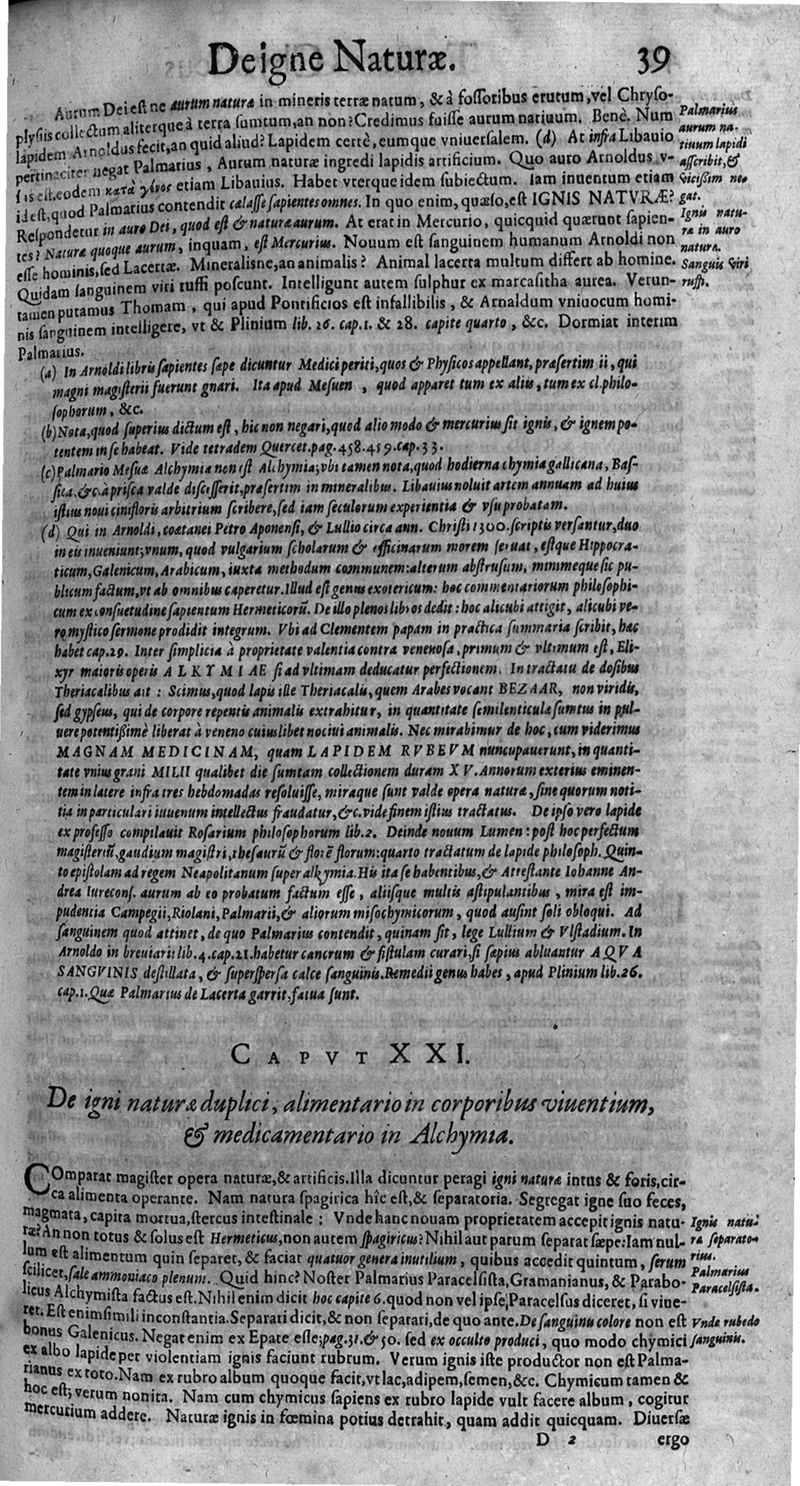 De igne Naturæ. 39
Aurum Dei est ne aurum natura in mineris terræ natum, & à fossoribus erutum, vel Chryso-
plysiis collectum aliterque à terra sumtum, an non? Credimus fuisse aurum natiuum. Benè. Num
lapidem Arnoldus fecit, an quid aliud? Lapidem certè, eumque vniuersalem. (d) At infra Libauio
pertinaciter negat Palmarius, Aurum naturæ ingredi lapidis artificium. Quo auro Arnoldus v-
sus est, eodem κατὰ γένος etiam Libauius. Habet vterque idem subiectum. Iam inuentum etiam
id est, quod Palmarius contendit calasse sapientes omnes. In quo enim, quæso, est IGNIS NATVRÆ?
Respondetur in auro Dei, quod est & naturæ aurum. At erat in Mercurio, quicquid quærunt sapien-
tes? Natura quoque aurum, inquam, est Mercurius. Nouum est sanguinem humanum Arnoldi non
esse hominis, sed Lacertæ. Mineralisne, an animalis? Animal lacerta multum differt ab homine.
Quidam sanguinem viri ruffi poscunt. Intelligunt autem sulphur ex marcasitha aurea. Verun-
tamen putamus Thomam, qui apud Pontificios est infallibilis, & Arnaldum vniuocum homi-
nis sanguinem intelligere, vt & Plinium lib. 26. cap. 1. & 28. capite quarto, &c. Dormiat interim
Palmarius.
Palmarius
aurum na-
tiuum lapidi
asscribit, &
vicissim ne-
gat.
Ignis natu-
ræ in auro
natura.
Sanguis viri
ruffi.
(a) In Arnoldi libris sapientes sæpe dicuntur Medici periti, quos & Physicos appellant, præsertim ii, qui
magni magisterii fuerunt gnari. Ita apud Mesuen, quod apparet tum ex aliis, tum ex cl. philo-
sophorum, &c.
(b) Nota, quod superius dictum est, hic non negari, quod alio modo & mercurius sit ignis, & ignem po-
tentem in se habeat. Vide tetradem Quercet. pag. 458. 459. cap. 33.
(c) Palmario Mesuæ Alchymia non est Alchymia; vbi tamen nota, quod hodierna chymia gallicana, Bas-
sica, &c. à prisca valde discesserit, præsertim in mineralibus. Libauius noluit artem annuam ad huius
istius noui ciniflonis arbitrium scribere, sed iam seculorum experientia & vsu probatam.
(d) Qui in Arnoldi, coætanei Petro Aponensi, & Lullio circa ann. Christi 1300. scriptis versantur, duo
in eis inueniunt; vnum, quod vulgarium scholarum & officinarum morem seruat, estque Hippocra-
ticum, Galenicum, Arabicum, iuxta methodum communem: alterum abstrusum, minimeque sic pu-
blicum factum, vt ab omnibus caperetur. Illud est genus exotericum: hoc commentariorum philosophi-
cum ex consuetudine sapientum Hermeticorũ. De illo plenos libros dedit: hoc alicubi attigit, alicubi ve-
ro mystico sermone prodidit integrum. Vbi ad Clementem papam in practica summaria scribit, hæc
habet cap. 29. Inter simplicia à proprietate valentia contra venenosa, primum & vltimum est, Eli-
xyr maioris operis ALKYMIAE si ad vltimam deducatur perfectionem. In tractatu de dosibus
Theriacalibus ait: Scimus, quod lapis ille Theriacalis, quem Arabes vocant BEZAAR, non viridis,
sed gypseus, qui de corpore repentis animalis extrahitur, in quantitate semilenticulæ sumtus in pul-
uere potentißimè liberat à veneno cuiuslibet nociui animalis. Nec mirabimur de hoc, cum viderimus
MAGNAM MEDICINAM, quam LAPIDEM RVBEVM nuncupauerunt, in quanti-
tate vnius grani MILII qualibet die sumtam collectionem duram XV. Annorum exterius eminen-
tem in latere infra tres hebdomadas resoluisse, miraque sunt valde opera natura, sine quorum noti-
tia in particulari iuuenum intellectus fraudatur, &c. vide finem istius tractatus. De ipso vero lapide
ex professo compilauit Rosarium philosophorum lib. 2. Deinde nouum Lumen: post hoc perfectum
magisteriũ, gaudium magistri, thesaurũ & florẽ florum: quarto tractatum de lapide philosoph. Quin-
to epistolam ad regem Neapolitanum super alkymia. His ita se habentibus, & Attestante Iohanne An-
drea Iurecons. aurum ab eo probatum factum esse, aliisque multis astipulantibus, mira est im-
pudentia Campegii, Riolani, Palmarii, & aliorum misochymicorum, quod ausint soli obloqui. Ad
sanguinem quod attinet, de quo Palmarius contendit, quinam sit, lege Lullium & Vlstadium. In
Arnoldo in breuiarii lib. 4. cap. 21. habetur cancrum & fistulam curari, si sæpius abluantur AQVA
SANGVINIS destillata, & superspersa calce sanguinis. Remedii genus habes, apud Plinium lib. 26.
cap. 1. Quæ Palmarius de Lacerta garrit, fatua sunt.
CAPVT XXI.
De igni natura duplici, alimentario in corporibus viuentium,
& medicamentario in Alchymia.
COmparat magister opera naturæ, & artificis. Illa dicuntur peragi igni natura intus & foris, cir-
ca alimenta operante. Nam natura spagirica hîc est, & separatoria. Segregat igne suo feces,
magmata, capita mortua, stercus intestinale: Vnde hanc nouam proprietatem accepit ignis natu-
ræ? An non totus & solus est Hermeticus, non autem spagiricus? Nihil aut parum separat sæpe: Iam nul-
lum est alimentum quin separet, & faciat quatuor genera inutilium, quibus accedit quintum, serum
scilicet, sale ammoniaco plenum. Quid hinc? Noster Palmarius Paracelsista, Gramanianus, & Parabo-
licus Alchymista factus est. Nihil enim dicit hoc capite 6. quod non vel ipse Paracelsus diceret, si viue-
ret. Est enim simili inconstantia. Separati dicit, & non separari, de quo ante. De sanguinis colore non est
bonus Galenicus. Negat enim ex Epate esse; pag. 31. & 50. sed ex occulto produci, quo modo chymici
ex albo lapide per violentiam ignis faciunt rubrum. Verum ignis iste productor non est Palma-
rianus ex toto. Nam ex rubro album quoque facit, vt lac, adipem, semen, &c. Chymicum tamen &
hoc est; verum non ita. Nam cum chymicus sapiens ex rubro lapide vult facere album, cogitur
mercurium addere. Naturæ ignis in fœmina potius detrahit, quam addit quicquam. Diuersæ
Ignis natu-
ræ separato-
rius.
Palmarius
Paracelsista.
Vnde rubedo
sanguinis.
D 2 ergo